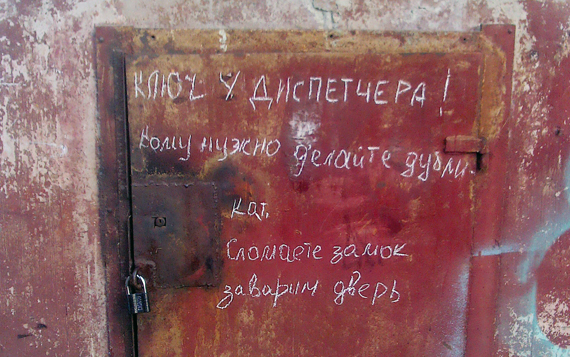 КЛЮЧ У ДИСПЕТЧЕРА!
Кому нужно делайте дубли.
кат.
Сломаете замок
заварим дверь